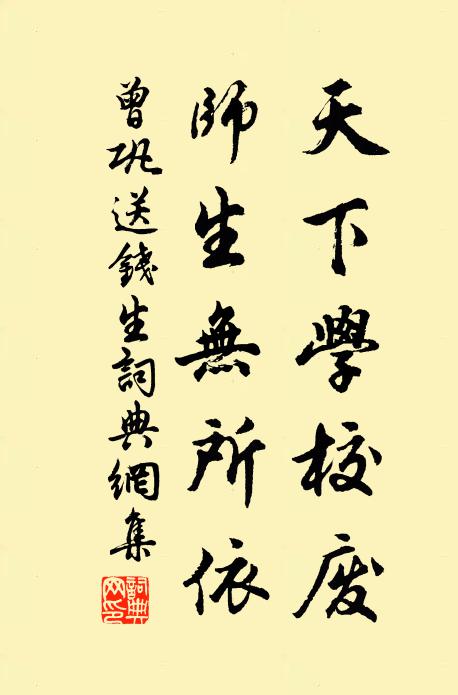 天下學校废
師生無所依
曾巩送錢生詞典網集
詞典網印